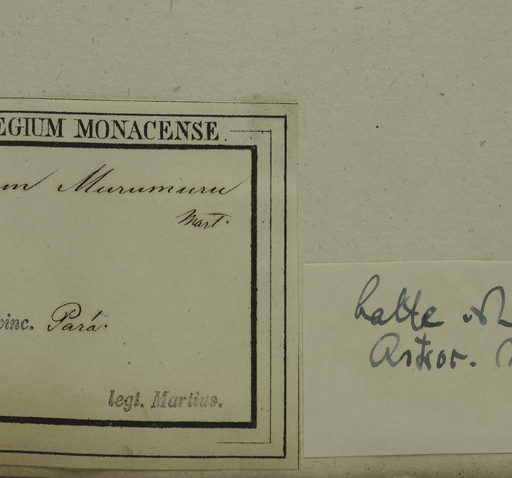 EGIUM MONACENSE.
m Murumuru
Mart.
vinc. Pará.
legt. Martius.
halte
Astror.